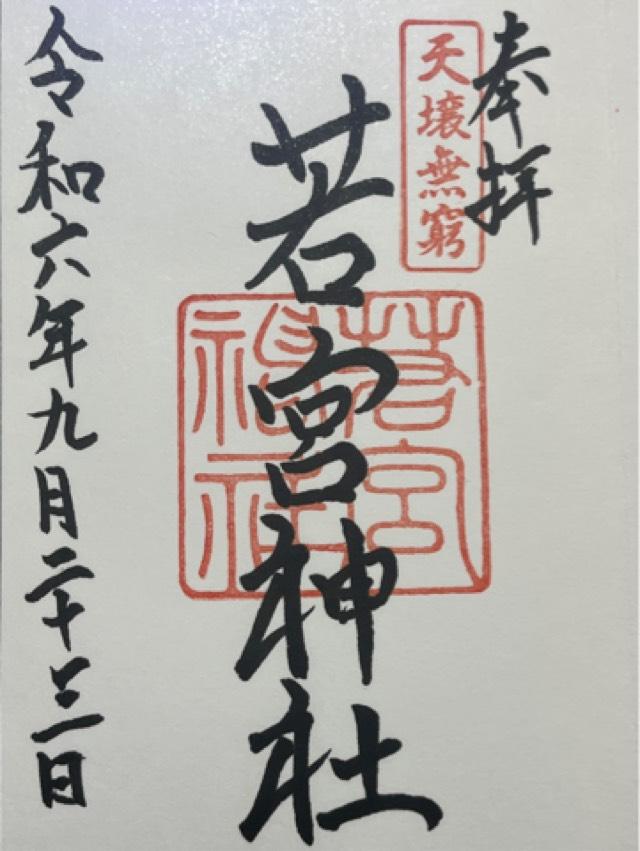 奉拝
天壌無窮
若宮神社
若宮神社
令和六年九月二十三日